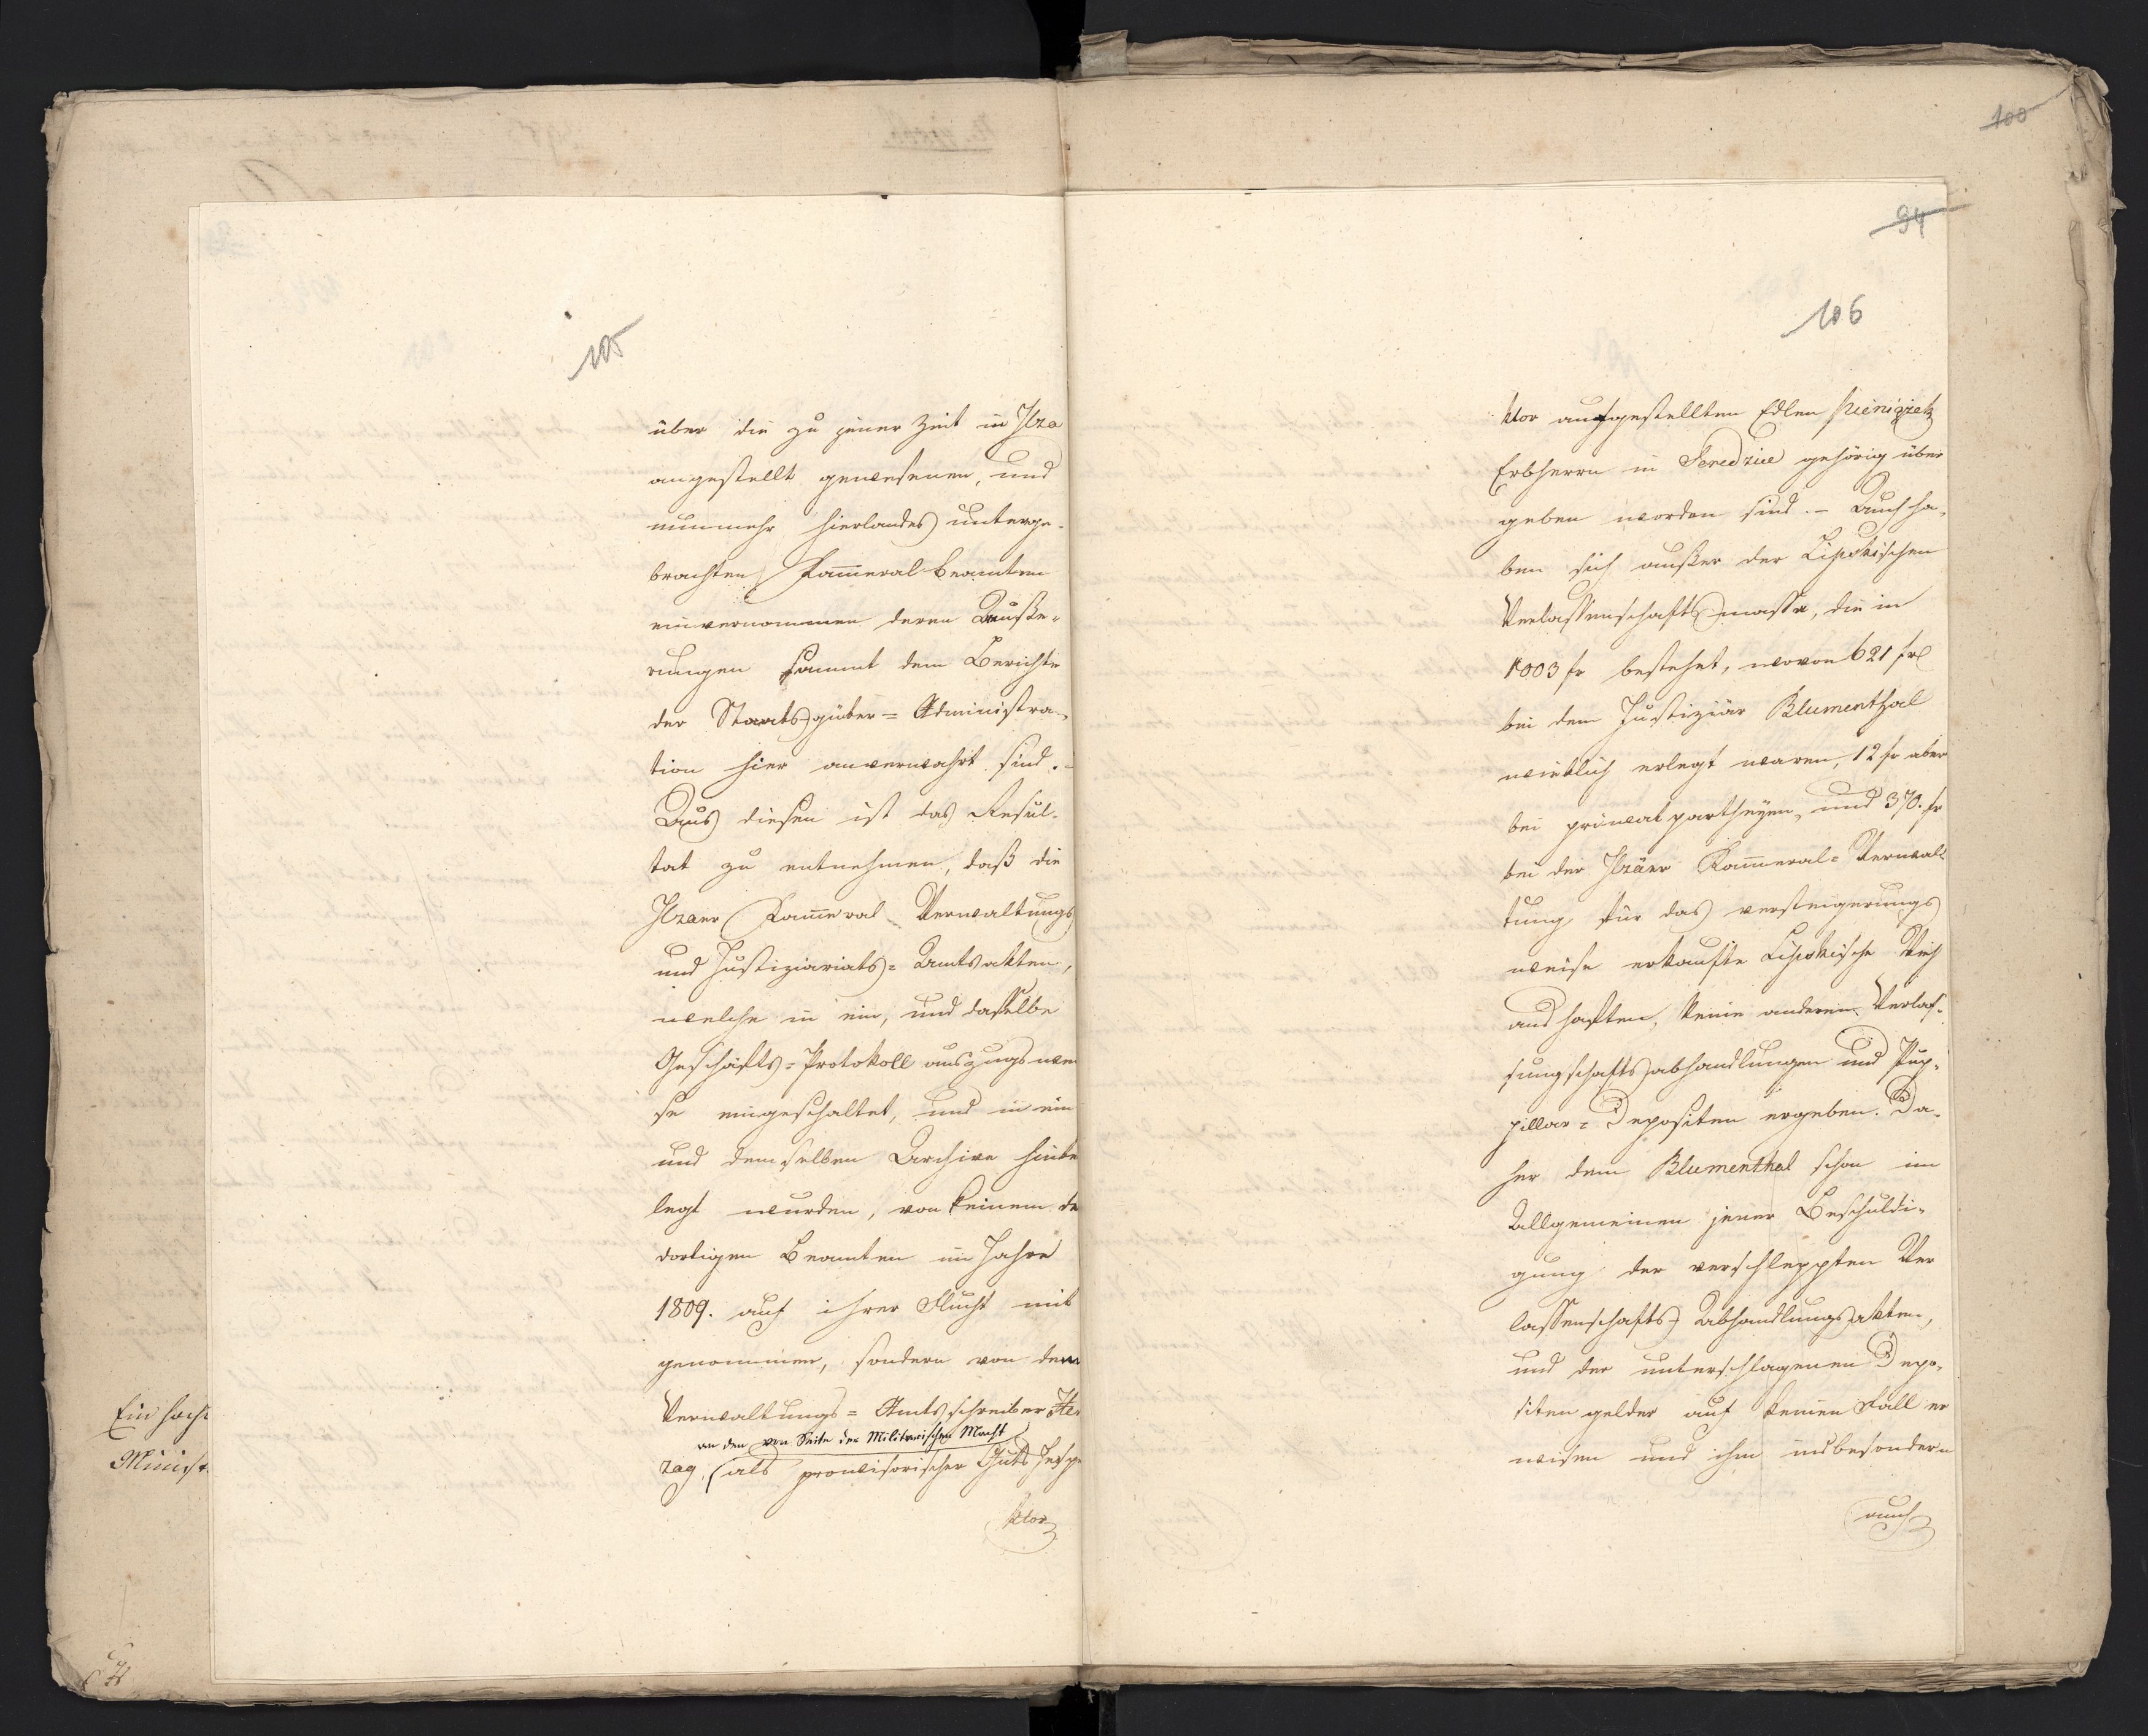 105
über die zu jener Zeit in Jlza
angestellt gewesenen, und
nunmehr hierlandes unterge-
brachten Kam̄eral-Beamten
einvernommen deren Aeuße-
rungen sammt dem Berichte
der Staatsgüter-Administra-
tion hier anverwahrt sind.-
Aus diesen ist das Resul-
tat zu entnehmen, daß die
Jlzaer Kam̄eral-Verwaltungs
und Justiziariats-Amtsakten,
welche in ein, und dasselbe
Geschäfts-Protokoll auszugswei
se eingeschaltet, und in ein
und demselben Archive hinte
legt wurden, von keinem de
dortigen Beamten im Jahre
1809. auf ihrer Flucht mit
genommen, sondern von dem
Verwaltungs-Amtsschreiber Her
an den von Seite der Militärischen Macht
zag, als provisorischer Guts Jnspe
ktor
Ein hoche
Minist
100
94
106
ktor aufgestellten Edlen Pieniązek
Erbherrn in Seredzice gehörig über
geben worden sind.- Auch ha-
ben sich außer der Lipskischen
Verlassenschaftsmasse, die in
1003 fr bestehet, wovon 621 fr
bei dem Justiziär Blumenthal
wirklich erlegt waren, 12 fr aber
bei privat partheyen, und 370. fr
bei der Jlzäer Kam̄eral-Verwal
tung für das versteigerungs
weise erkaufte Lipskische Vieh
aushaften, keine anderen Verlas-
sungschaftsabhandlungen und Pup-
pillar-Depositen ergeben. Da-
her dem Blumenthal schon im
Allgemeinen jener Beschuldi-
gung der verschleppten Ver
lassenschafts-Abhandlungsakten,
und der unterschlagenen Depo-
siten gelder auf keinen Fall er
wiesen und ihm insbesondere
auch